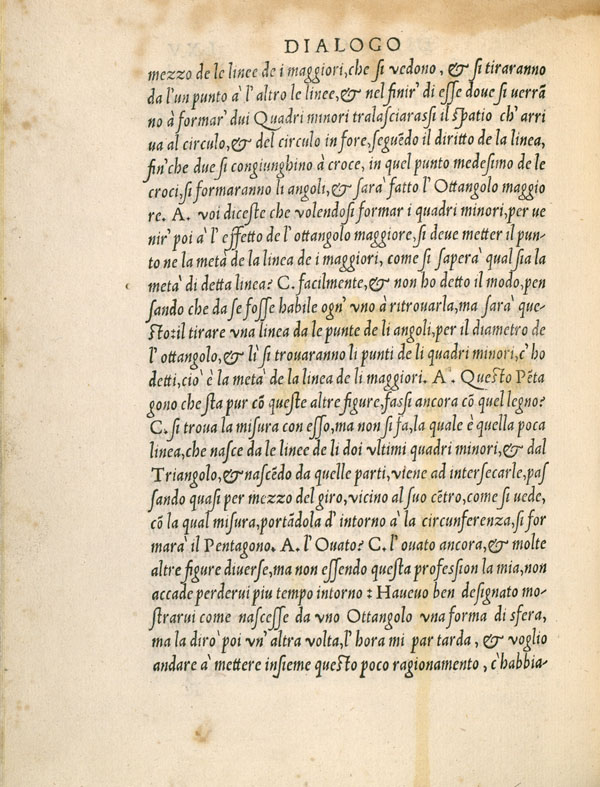 DIALOGO
mezzo de le linee de i maggiori, che si vedono, & si tiraranno
da l'un punto à l'altro le linee, & nel finir' di esse doue si verrã
no à formar' dui Quadri minori tralasciarassi il spatio ch' arri
ua al circulo, & del circulo in fore, seguẽdo il diritto de la linea,
fin' che due si congiunghino à croce, in quel punto medesimo de le
croci, si formaranno li angoli, & sarà fatto l' Ottangolo maggio
re. A. voi diceste che volendosi formar i quadri minori, per ue
nir' poi à l' effetto de l' ottangolo maggiore, si deue metter il pun-
to ne la metà de la linea de i maggiori, come si saperà qual sia la
metà di detta linea? C. facilmente, & non ho detto il modo, pen
sando che da se fosse habile ogn' vno à ritrouarla, ma sarà que-
sto: il tirare vna linea da le punte de li angoli, per il diametro de
l' ottangolo, & lì si trouaranno li punti de li quadri minori, c' ho
detti, ciò è la metà de la linea de li maggiori. A. Questo Pẽta
gono che sta pur cõ queste altre figure, fassi ancora cõ quel legno?
C. si troua la misura con esso, ma non si fa, la quale è quella poca
linea, che nasce da le linee de li doi vltimi quadri minori, & dal
Triangolo, & nascẽdo da quelle parti, viene ad intersecarle, pas
sando quasi per mezzo del giro, vicino al suo cẽtro, come si uede,
cõ la qual misura, portãdola d' intorno à la circunferenza, si for
marà il Pentagono. A. l' Ouato? C. l' ouato ancora, & molte
altre figure diuerse, ma non essendo questa profession la mia, non
accade perderui piu tempo intorno : Haueuo ben designato mo-
strarui come nascesse da vno Ottangolo vna forma di sfera,
ma la dirò poi vn' altra volta, l' hora mi par tarda, & voglio
andare à mettere insieme questo poco ragionamento, c' habbia-